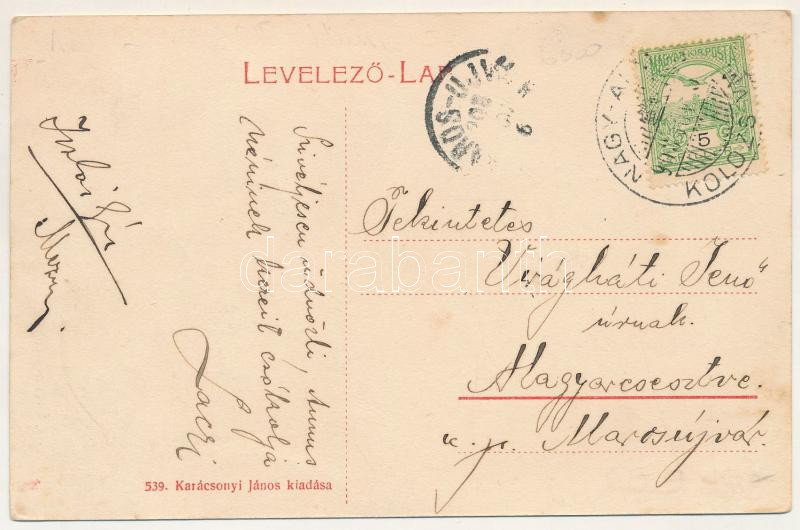 LEVELEZŐ-LAP
MAGYAR KIR. POSTA
NAGY-
KOLOZS
5
MAROS-UJVÁR
Szivélyesen üdvözli, Annus
néninek kezeit csókolja
Laczi
Tekintetes
Virágháti Jenő
úrnak.
Magyarcsesztve.
u. p. Marosújvár.
539. Karácsonyi János kiadása
darabanth